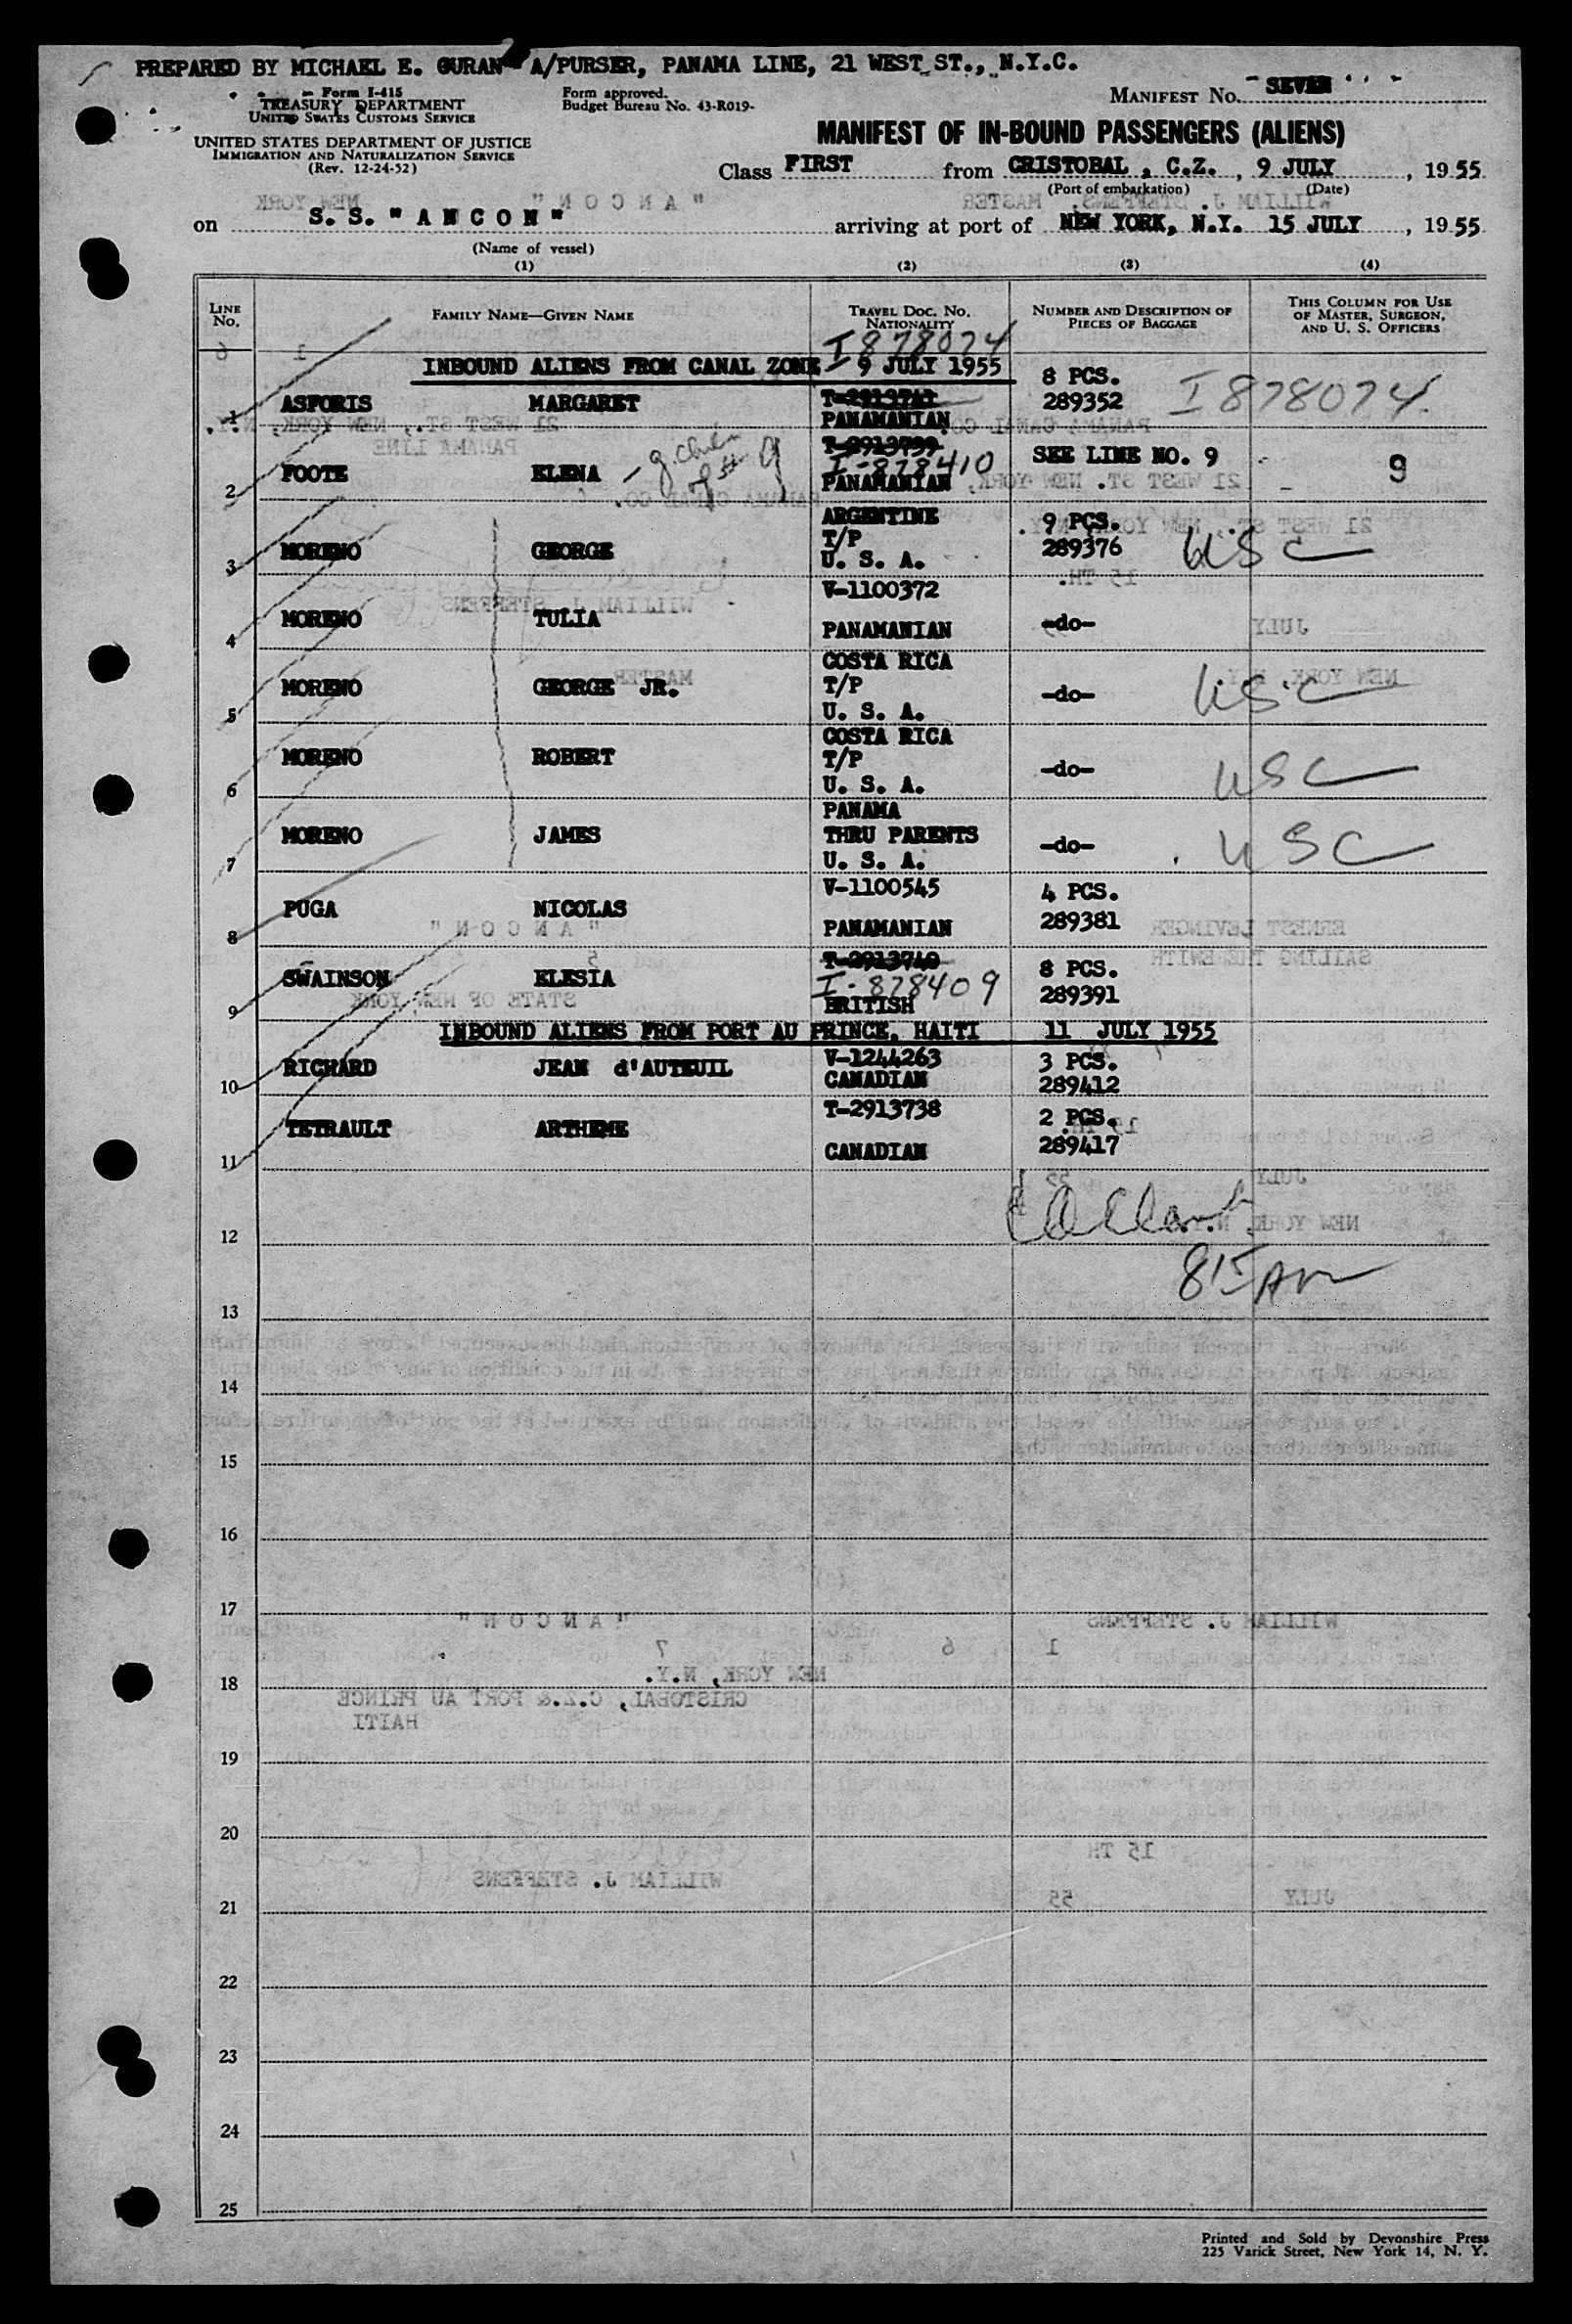 PREPARED BY MICHAEL E. GURAN A/PURSER, PANAMA LINE, 21 WEST ST., N.Y.C.
Form I-415
TREASURY DEPARTMENT
UNITED STATES CUSTOMS SERVICE
UNITED STATES DEPARTMENT OF JUSTICE
IMMIGRATION AND NATURALIZATION SERVICE
(Rev. 12-24-52)
Form approved.
Budget Bureau No. 43-R019-
MANIFEST NO. SEVEN
MANIFEST OF IN-BOUND PASSENGERS (ALIENS)
Class FIRST from CRISTOBAL, C.Z., 9 JULY, 1955
(Port of embarkation) (Date)
on S. S. "ANCON" arriving at port of NEW YORK, N.Y. 15 JULY, 1955
(Name of vessel)
(1) (2) (3) (4)
LINE NO. FAMILY NAME—GIVEN NAME TRAVEL DOC. NO. NATIONALITY NUMBER AND DESCRIPTION OF PIECES OF BAGGAGE THIS COLUMN FOR USE OF MASTER, SURGEON, AND U. S. OFFICERS
I 878074
INBOUND ALIENS FROM CANAL ZONE - 9 JULY 1955
1 ASFORIS MARGARET T-2913741 PANAMANIAN 8 PCS. 289352 I 878074
2 FOOTE ELENA T-2913739 I-878410 PANAMANIAN SEE LINE NO. 9 9
3 MORENO GEORGE ARGENTINE T/P U. S. A. 9 PCS. 289376 USC
4 MORENO TULIA V-1100372 PANAMANIAN -do-
5 MORENO GEORGE JR. COSTA RICA T/P U. S. A. -do- USC
6 MORENO ROBERT COSTA RICA T/P U. S. A. -do- USC
7 MORENO JAMES PANAMA THRU PARENTS U. S. A. -do- USC
8 PUGA NICOLAS V-1100545 PANAMANIAN 4 PCS. 289381
9 SWAINSON ELESIA T-2913740 I-878409 BRITISH 8 PCS. 289391
INBOUND ALIENS FROM PORT AU PRINCE, HAITI 11 JULY 1955
10 RICHARD JEAN d'AUTEUIL V-1244263 CANADIAN 3 PCS. 289412
11 TETRAULT ARTHEME T-2913738 CANADIAN 2 PCS. 289417
12
815 AM
13
14
15
16
17
18
19
20
21
22
23
24
25
Printed and Sold by Devonshire Press
225 Varick Street, New York 14, N. Y.